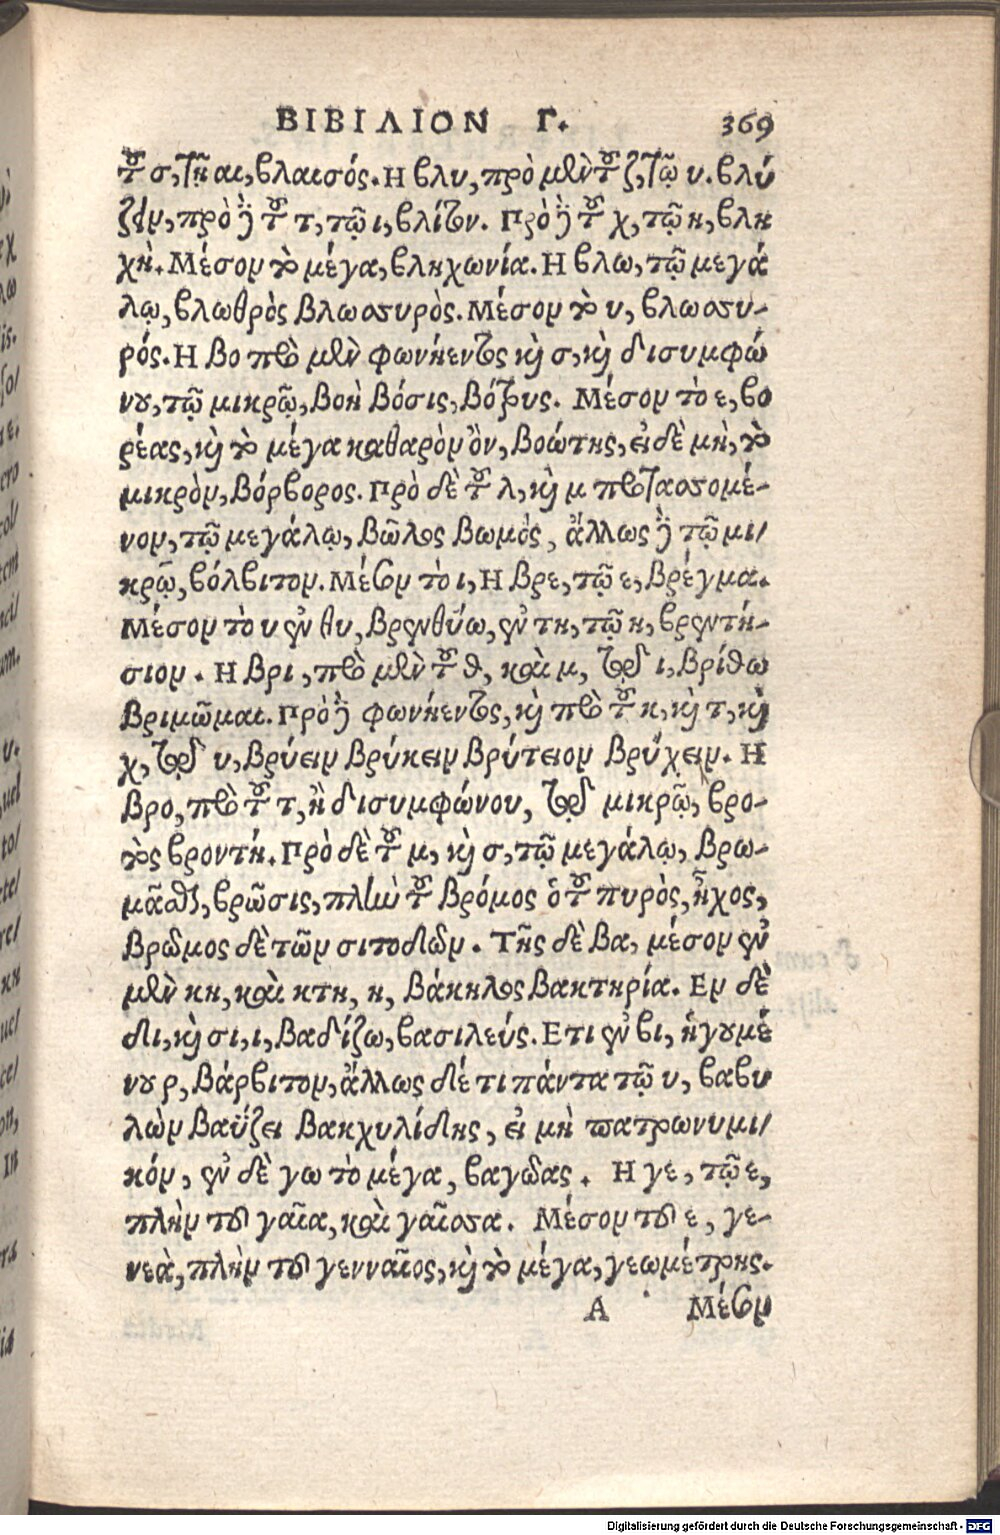 ΒΙΒΙΛΙΟΝ Γ. 369
τοῦ σ, τῇ αι, βλαισός. Η βλυ, πρὸ μὲν τοῦ ζ, τῷ υ. βλύ
ζειν, πρὸ ἢ τοῦ τ, τῷ ι, βλίτον. Πρὸ ἢ τοῦ χ, τῷ η, βλη
χή. Μέσον τὸ μέγα, βληχωνία. Η βλω, τῷ μεγά
λῳ, βλωθρὸς βλωσυρὸς. Μέσον τὸ υ, βλωσυ-
ρός. Η βο πρὸ μὲν φωνήεντος καὶ σ, καὶ δισυμφώ
νου, τῷ μικρῷ, βοὴ βόσις, βότρυς. Μέσον τὸ ε, βο
ρέας, καὶ τὸ μέγα καθαρὸν ὂν, βοώτης, εἰ δὲ μὴ, τὸ
μικρὸν, βόρβορος. Πρὸ δὲ τοῦ λ, καὶ μ προτασσομέ-
νου, τῷ μεγάλῳ, βῶλος βωμός, ἄλλως ἢ τῷ μι/
κρῷ, βόλβιτον. Μέσον τὸ ι, Η βρε, τῷ ε, βρέγμα.
Μέσον τὸ υ ἐν θυ, βρενθύω, ἐν τη, τῷ η, βρεντή-
σιον. Η βρι, πρὸ μὲν τοῦ θ, καὶ μ, διὰ τοῦ ι, βρίθω
βριμῶμαι. Πρὸ ἢ φωνήεντος, καὶ πρὸ τοῦ κ, καὶ τ, καὶ
χ, διὰ τοῦ υ, βρύειν βρύκειν βρύτειον βρύχειν. Η
βρο, πρὸ τοῦ τ, ἢ δισυμφώνου, διὰ τοῦ μικρῷ, βρο-
τὸς βροντή. Πρὸ δὲ τοῦ μ, καὶ σ, τῷ μεγάλῳ, βρω-
μᾶσθαι, βρῶσις, πλὴν τοῦ βρόμος ὁ τοῦ πυρὸς, ἦχος,
βρῶμος δὲ τῶν σιτοδιῶν. Τῆς δὲ βα, μέσον ἐν
μὲν κη, καὶ κτη, η, βάκηλος βακτηρία. Εν δὲ
δι, καὶ σι, ι, βαδίζω, βασιλεύς. Ετι ἐν βι, ἡγουμέ
νου ρ, βάρβιτον, ἄλλως διέ τι πάντα τῷ υ, βαβυ
λὼν βαΰζει βακχυλίδης, εἰ μὴ πατρωνυμι/
κόν, ἐν δὲ γω τὸ μέγα, βαγώας. Η γε, τῷ ε,
πλὴν τοῦ γαῖα, καὶ γαῖσσα. Μέσον τοῦ ε, γε-
νεὰ, πλὴν τοῦ γενναῖος, καὶ τὸ μέγα, γεωμέτρης.
Α Μέσον